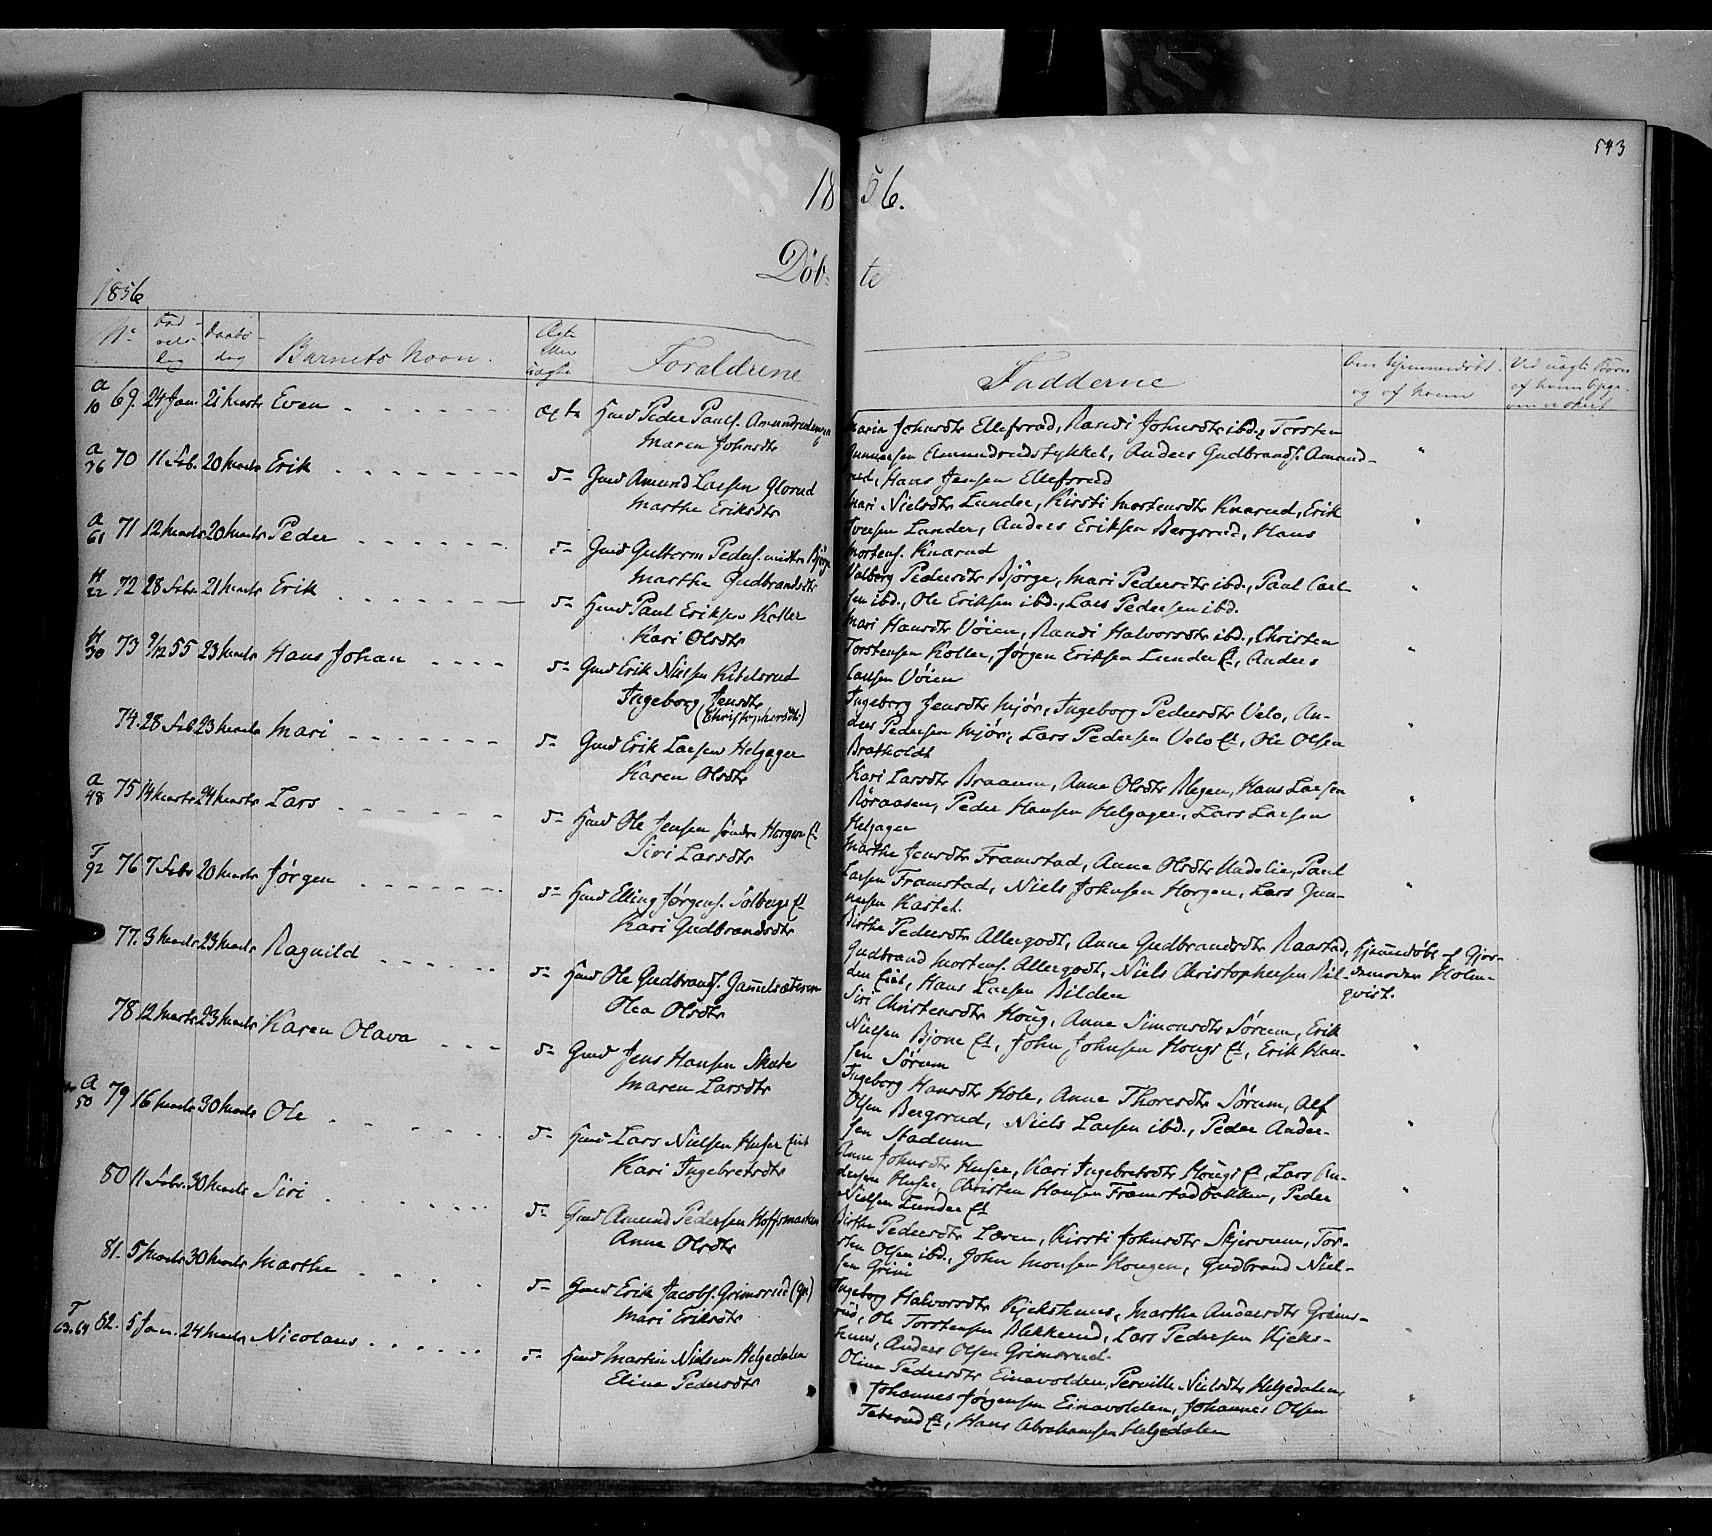 543
1856.
Døbte
1856
No Fødselsdag Daabsdag Barnets Navn. Ægte eller uægte Forældrene
Fadderne Om hjemmedøbt og af hvem Ved uægte Børn
A 10 69. 24 Jan. 21 Marts Even ægte Huusmd Peder Pauls. Amundrudengen
Maren Johnsdtr
Marie Johnsdtr Ellefsrud, Randi Johnsdtr ibd., Torsten
Gunnersen Amundrudstykket, Anders Gudbrands. Amund-
rud, Hans Jensen Ellefsrud
A 76 70 11 Febr. 20 Marts Erik d- Gmd Amund Larsen Glorud
Marthe Eriksdtr
Mari Nielsdtr Lunder, Kirsti Mortensdtr Knarud, Erik
Iversen Lunder, Anders Eriksen Bergsrud, Hans
Mortens. Knarud
A 61 71 12 Marts 20 Marts Peder d- Gmd Guttorm Peders. Bjørge
Marthe Gudbrandsdtr
Valborg Pedersdtr Bjørge, Mari Pedersdtr ibd., Paul Carl-
sen ibd., Ole Eriksen ibd., Lars Pedersen ibd.
H 22 72 28 Febr. 21 Marts Erik d- Hmd Paul Eriksen Koller
Kari Olsdtr
Mari Hansdtr Vøien, Randi Halvorsdtr ibd., Christen
Torstensen Koller, Jørgen Eriksen Lunder Et, Anders
Larsen Vøien
H 30 73 9/12 55 23 Marts Hans Johan d- Gmd Erik Nielsen Kibelsrud
Ingeborg Jensdtr
(Christophersdtr)
Ingeborg Jensdtr Mjør, Ingeborg Pedersdtr Velo, An-
ders Pedersen Mjør, Lars Pedersen Velo Et, Ole Olsen
Bratholdt
74. 28 Feb 23 Marts Mari d- Gmd Erik Larsen Helgager
Karen Olsdtr
Kari Larsdtr Braaten, Anne Olsdtr Blegen, Hans Larsen
Røraasen, Peder Hansen Helgager, Lars Larsen
Helgager
A 48 75 14 Marts 24 Marts Lars d- Hmd Ole Jensen Søndre Horgen Et
Siri Larsdtr
Marthe Jensdtr Framstad, Anne Olsdtr Aadalie, Paul
Larsen Framstad, Niels Johnsen Horgen, Lars Gun-
nersen Kastet.
T 92 76 7 Febr 20 Marts Jørgen d- Hmd Elling Jørgens. Sølberg Et
Kari Gudbrandsdtr
Birthe Pedersdtr Allergodt, Anne Gudbrandsdtr Raastad,
Gudbrand Mortens. Allergodt, Niels Christophersen Bil-
den Eiet, Hans Larsen Bilden
77. 3 Marts 23 Marts Ragnild d- Hmd Ole Gudbrands. Gamelsæteren
Olea Olsdtr
Hjemmedøbt af Gjor-
demoder Holm-
qvist.
Siri Christensdtr Houg, Anne Simensdtr Sørum, Erik
Nielsen Bjone Et, John Johnsen Hougs Et, Erik Han-
sen Sørum
78 12 Marts 23 Marts Karen Olava d- Gmd Jens Hansen Skute
Maren Larsdtr
Ingeborg Hansdtr Hole, Anne Thoresdtr Sørum, Alf
Olsen Bergsrud, Niels Larsen ibd., Peder Ander-
sen Stadum
A 50 79 16 Marts 30 Marts Ole d- Hmd Lars Nielsen Huser Eiet
Kari Ingebretsdtr
Anne Johnsdtr Huser, Kari Ingebretsdtr Hougs Et, Lars An-
dersen Huser, Christen Hansen Framstadbakken, Peder
Nielsen Lunder Et
80 11 Febr. 30 Marts Siri d- Gmd Amund Pedersen Hoffsmarken
Anne Olsdtr
Birthe Pedersdtr Loeren, Kirsti Johnsdtr Skjervum, Tor-
sten Olsen ibd., John Monsen Hougen, Gudbrand Niel-
sen Grini
81. 5 Marts 30 Marts Marthe d- Gmd Erik Jacobs. Grimsrud (Gr)
Mari Eriksdtr
Ingeborg Halvorsdtr Kjekshuus, Marthe Andersdtr Grims-
rud, Ole Torstensen Blekkerud, Lars Pedersen Kjeks-
huus, Anders Olsen Grimsrud
T 63.64 82. 5 Jan. 24 Marts Nicolaus d- Hmd Martin Nielsen Helgedalen
Eline Pedersdtr
Oline Pedersdtr Einavolden, Pernille Nielsdtr Helgedalen,
Johannes Jørgensen Einavolden, Johannes Olsen
Teterud Et, Hans Abrahamsen Helgedalen